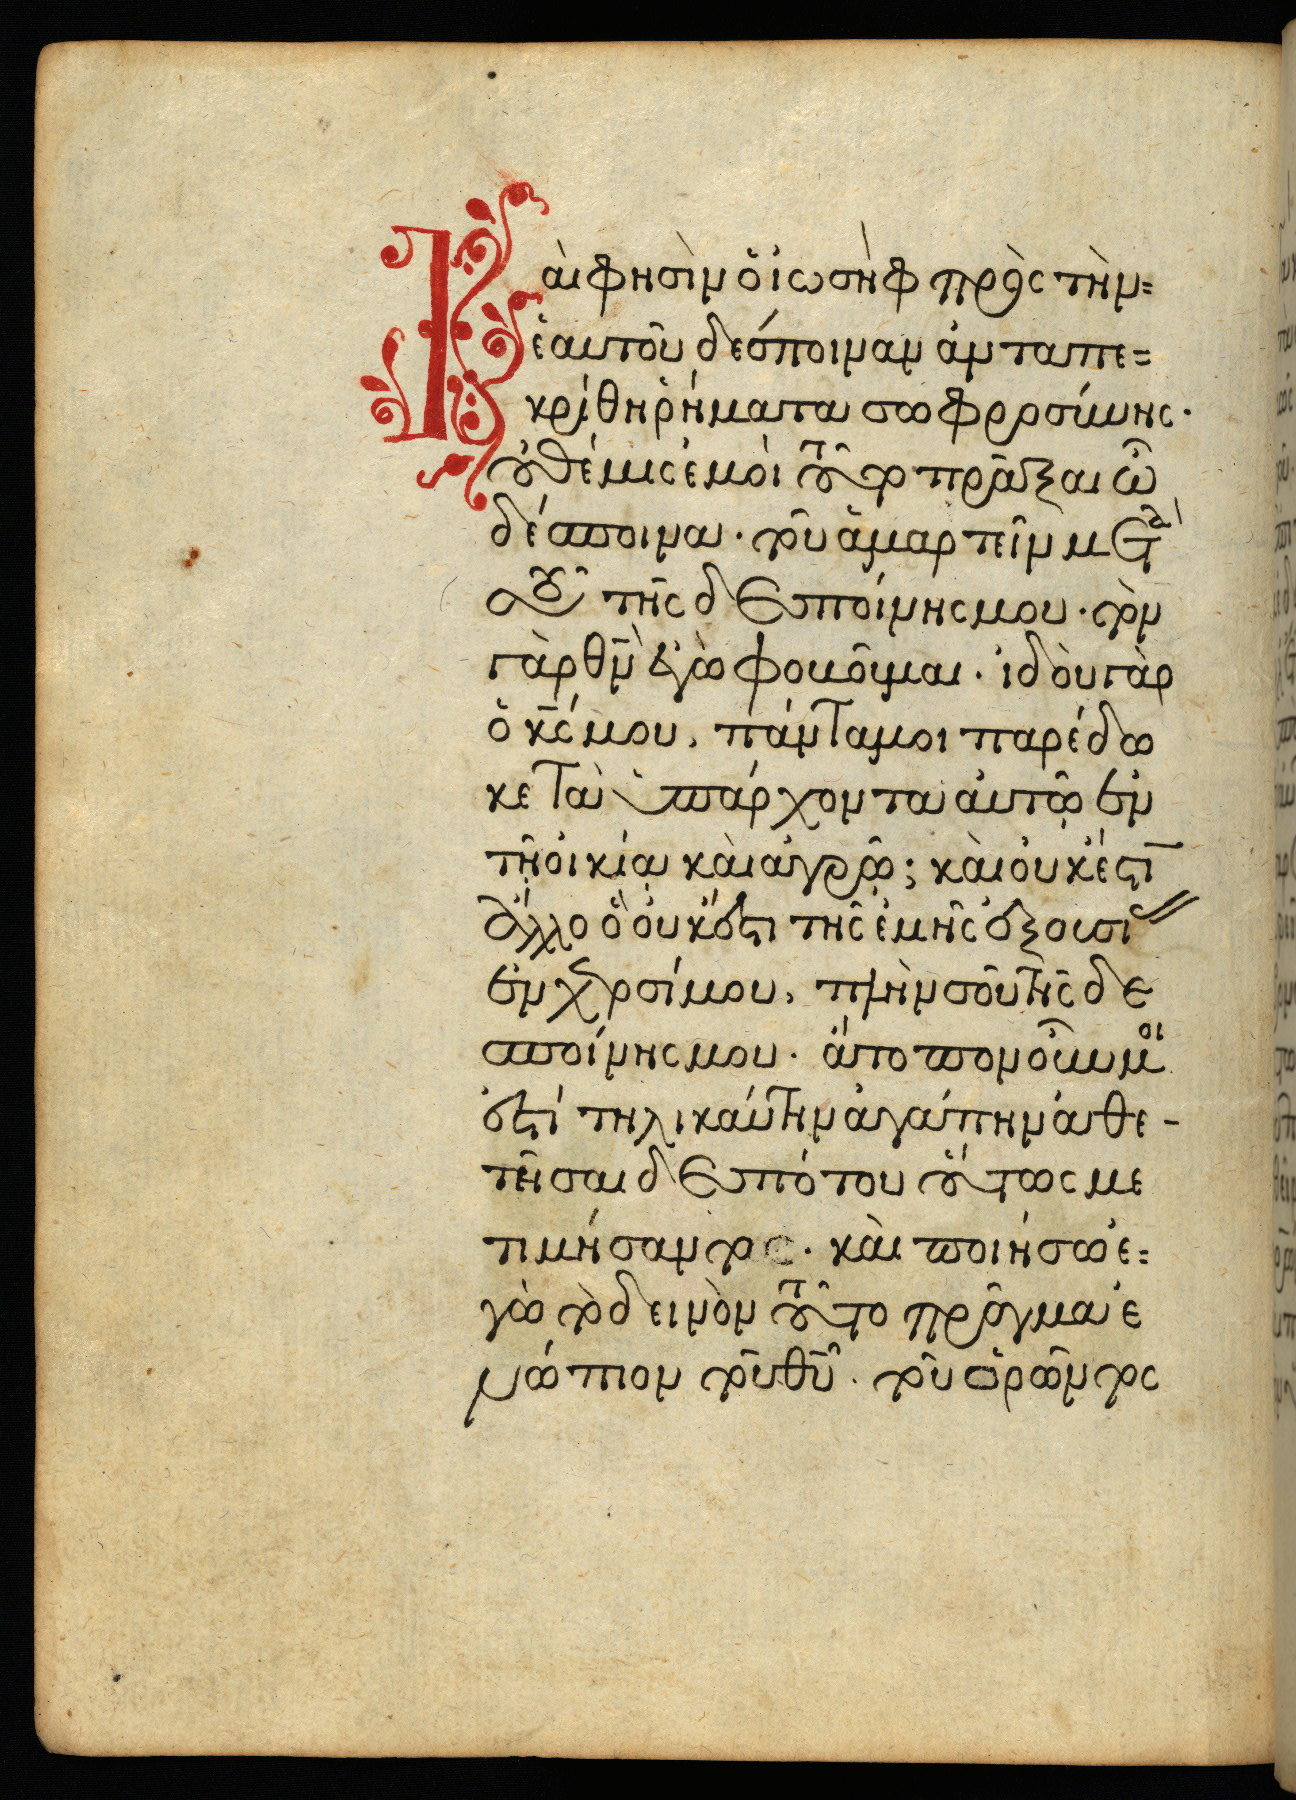 Καὶ φησὶν ὁ ἰωσὴφ πρὸς τὴν=
ἑαυτοῦ δέσποιναν ἀνταπε=
κρίθη ῥήματα σωφροσύνης·
οὐ θέμις ἐμοὶ τοῦτο πρᾶξαι ὦ
δέσποινα· τοῦ ἁμαρτεῖν μετὰ
τῆς δεσποίνης μου· τὸν
γὰρ θν̅ ἐγὼ φοβοῦμαι· ἰδοὺ γὰρ
ὁ κ̅ς μου, πάντα μοι παρέδω
κε τὰ ὑπάρχοντα αὐτῷ ἐν
τῇ οἰκίᾳ καὶ ἀγρῷ; καὶ οὐκ ἔστι
ἄλλο ὃ οὐκ ἔστι τῆς ἐμῆς ἐξουσί
ἐν χερσί μου, πλὴν σοῦ τῆς δε
σποίνης μου· ἄτοπον οὖν μοι
ἐστί τηλικαύτην ἀγάπην ἀθε-
τῆσαι δεσπότου οὕτως με
τιμήσαντος· καὶ ποιήσω ἐ=
γὼ τὸ δεινὸν τοῦτο πρᾶγμα ἐ
νώπιον τοῦ θυ̅· τοῦ ὁρῶντος